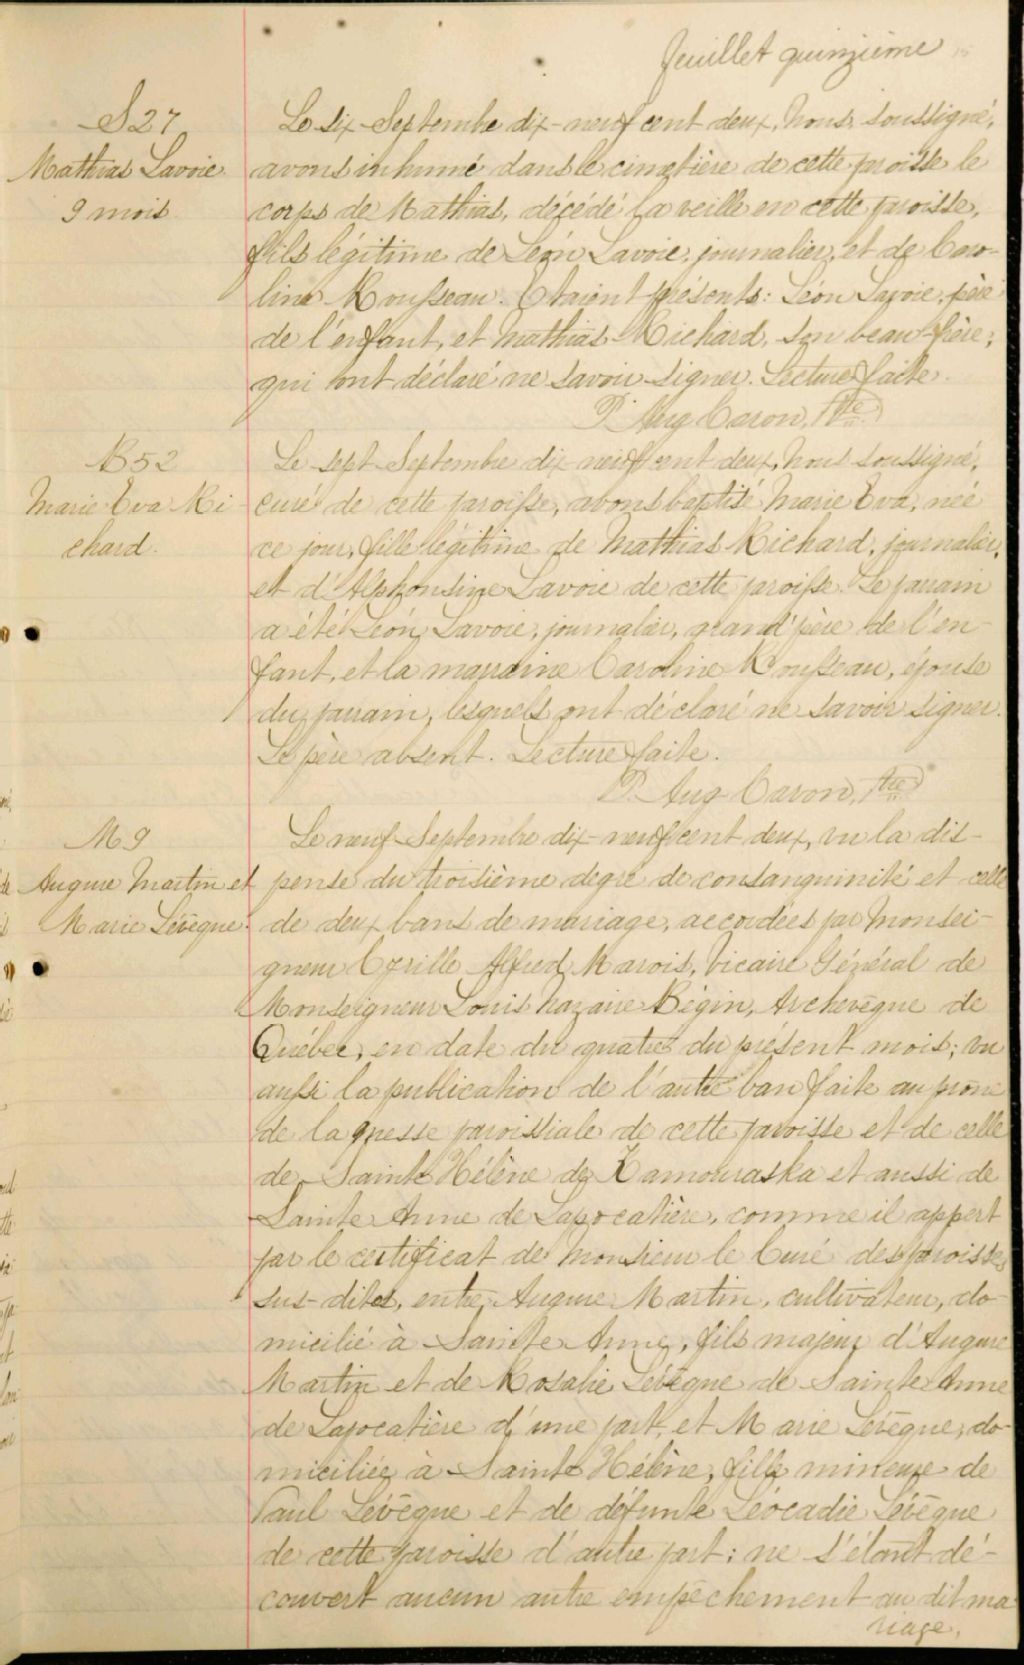 feuillet quinzième
S 27
Mathias Lavoie
9 mois
Le six Septembre dix-neuf cent deux, Nous, soussigné,
avons inhumé dans le cimetière de cette paroisse le
corps de Mathias, décédé la veille en cette paroisse,
fils légitime de Léon Lavoie, journalier, et de Caro-
line Rousseau. Etaient présents: Léon Lavoie, père
de l'enfant, et Mathias Richard, son beau-frère,
qui ont déclaré ne savoir signer. Lecture faite.
P. Aug Caron, Ptre
B 52
Marie Eva Ri-
chard.
Le sept Septembre dix-neuf cent deux, Nous soussigné,
curé de cette paroisse, avons baptisé Marie Eva, née
ce jour, fille légitime de Mathias Richard, journalier,
et d'Alphonsine Lavoie de cette paroisse. Le parrain
a été Léon Lavoie, journalier, grand'père de l'en-
fant, et la marraine Caroline Rousseau, épouse
du parrain, lesquels ont déclaré ne savoir signer.
Le père absent. Lecture faite.
P. Aug Caron, Ptre
M 9
Augure Martin et
Marie Lévêque.
Le neuf Septembre dix-neuf cent deux, vu la dis-
pense du troisième degré de consanguinité et celle
de deux bans de mariage, accordées par Monsei-
gneur Cyrille Alfred Marois, Vicaire Général de
Monseigneur Louis Nazaire Bégin, Archevêque de
Québec, en date du quatre du présent mois; vu
aussi la publication de l'autre ban faite au prône
de la messe paroissiale de cette paroisse et de celle
de Sainte Hélène de Kamouraska et aussi de
Sainte Anne de Lapocatière, comme il appert
par le certificat de Monsieur le Curé des paroisses
sus-dites, entre Augure Martin, cultivateur, do-
micilié à Sainte Anne, fils majeur d'Augure
Martin et de Rosalie Lévêque de Sainte Anne
de Lapocatière d'une part, et Marie Lévêque, do-
miciliée à Sainte Hélène, fille mineure de
Paul Lévêque et de défunte Léocadie Lévêque
de cette paroisse d'autre part: ne s'étant dé-
couvert aucun autre empêchement au dit ma-
riage,